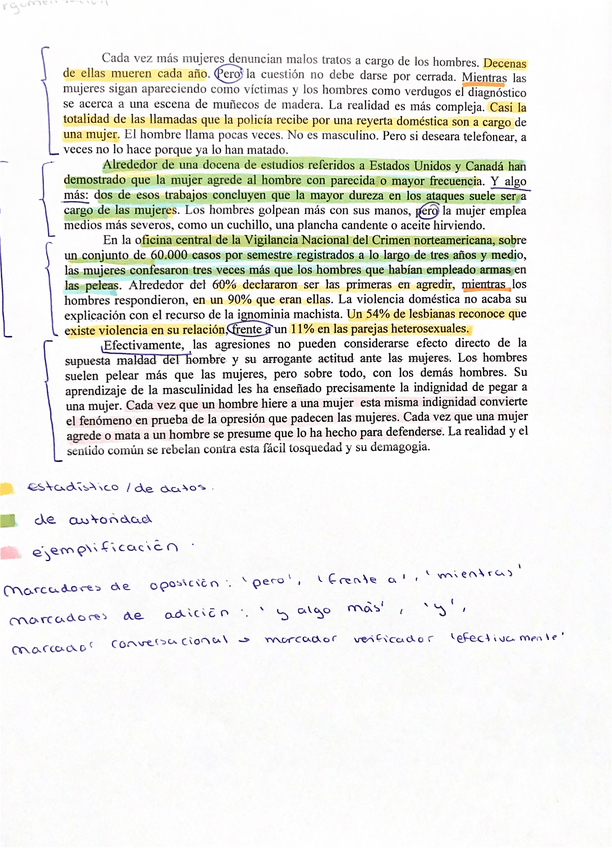 Cada vez más mujeres denuncian malos tratos a cargo de los hombres. Decenas
de ellas mueren cada año. Pero la cuestión no debe darse por cerrada. Mientras las
mujeres sigan apareciendo como víctimas y los hombres como verdugos el diagnóstico
se acerca a una escena de muñecos de madera. La realidad es más compleja. Casi la
totalidad de las llamadas que la policía recibe por una reyerta doméstica son a cargo de
una mujer. El hombre llama pocas veces. No es masculino. Pero si deseara telefonear, a
veces no lo hace porque ya lo han matado.
Alrededor de una docena de estudios referidos a Estados Unidos y Canadá han
demostrado que la mujer agrede al hombre con parecida o mayor frecuencia. Y algo
más: dos de esos trabajos concluyen que la mayor dureza en los ataques suele ser a
cargo de las mujeres. Los hombres golpean más con sus manos, pero la mujer emplea
medios más severos, como un cuchillo, una plancha candente o aceite hirviendo.
En la oficina central de la Vigilancia Nacional del Crimen norteamericana, sobre
un conjunto de 60.000 casos por semestre registrados a lo largo de tres años y medio,
las mujeres confesaron tres veces más que los hombres que habían empleado armas en
las peleas. Alrededor del 60% declararon ser las primeras en agredir, mientras los
hombres respondieron, en un 90% que eran ellas. La violencia doméstica no acaba su
explicación con el recurso de la ignominia machista. Un 54% de lesbianas reconoce que
existe violencia en su relación, frente a un 11% en las parejas heterosexuales.
Efectivamente, las agresiones no pueden considerarse efecto directo de la
supuesta maldad del hombre y su arrogante actitud ante las mujeres. Los hombres
suelen pelear más que las mujeres, pero sobre todo, con los demás hombres. Su
aprendizaje de la masculinidad les ha enseñado precisamente la indignidad de pegar a
una mujer. Cada vez que un hombre hiere a una mujer esta misma indignidad convierte
el fenómeno en prueba de la opresión que padecen las mujeres. Cada vez que una mujer
agrede o mata a un hombre se presume que lo ha hecho para defenderse. La realidad y el
sentido común se rebelan contra esta fácil tosquedad y su demagogia.
Estadístico / de datos.
de autoridad
ejemplificación.
Marcadores de oposición: 'pero', 'frente a', 'mientras'
marcadores de adición: 'y algo más', 'y',
marcador conversacional → marcador verificador 'efectivamente'